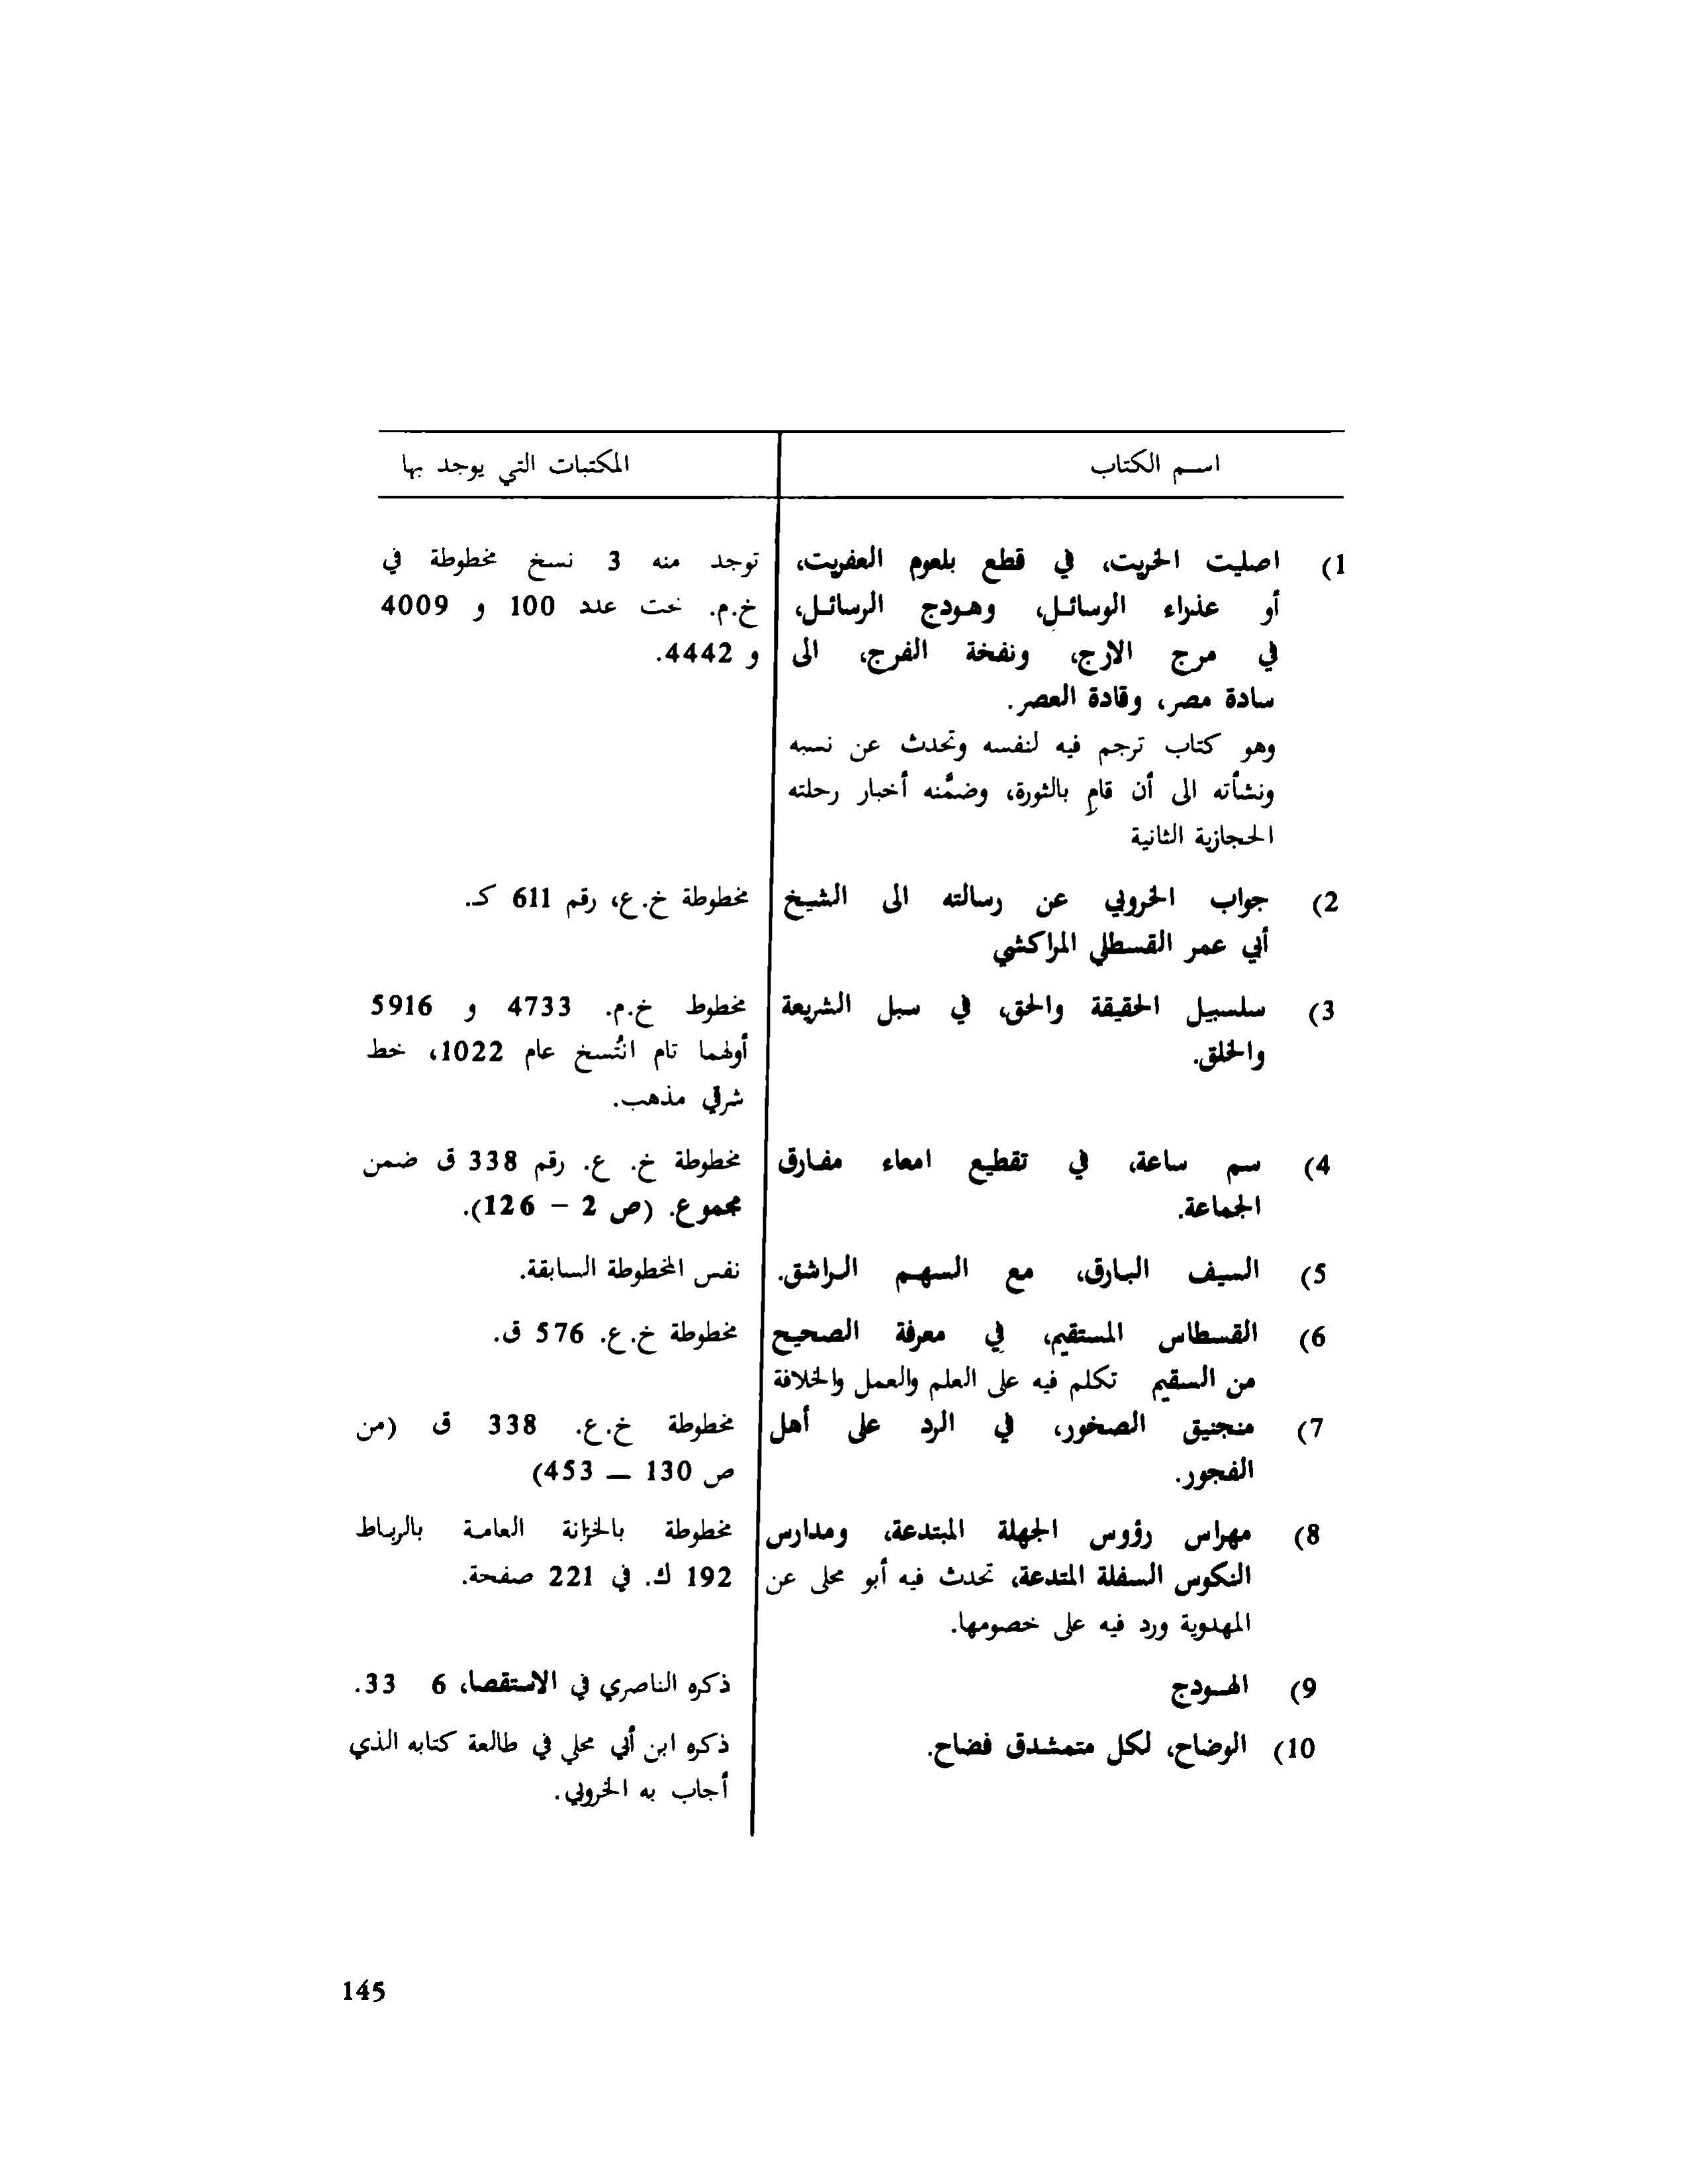 اسم الكتاب
المكتبات التي يوجد بها
1) اصليت الخريت، في قطع بلعوم العفريت،
أو عذراء الوسائل، وهودج الرسائل،
في مرج الارج، ونفخة الفرج، الى
سادة مصر، وقادة العصر.
وهو كتاب ترجم فيه لنفسه وتحدث عن نسبه
ونشأته الى أن قام بالثورة، وضمَّنه أخبار رحلته
الحجازية الثانية
توجد منه 3 نسخ مخطوطة في
خ.م. تحت عدد 100 و 4009
و 4442.
2) جواب الخروبي عن رسالته الى الشيخ
أبي عمر القسطلي المراكشي
مخطوطة خ.ع، رقم 611 كـ.
3) سلسبيل الحقيقة والحق، في سبل الشريعة
والخلق.
مخطوط خ.م. 4733 و 5916
أولهما تام انتُسخ عام 1022، خط
شرقي مذهب.
4) سم ساعة، في تقطيع امعاء مفارق
الجماعة.
مخطوطة خ. ع. رقم 338 ق ضمن
مجموع. (ص 2 – 126).
5) السيف البارق، مع السهم الراشق.
نفس المخطوطة السابقة.
6) القسطاس المستقيم، في معرفة الصحيح
من السقيم تكلم فيه على العلم والعمل والخلافة
مخطوطة خ.ع. 576 ق.
7) منجنيق الصخور، في الرد على أهل
الفجور.
مخطوطة خ.ع. 338 ق (من
ص 130 — 453)
8) مهراس رؤوس الجهلة المبتدعة، ومدارس
النكوس السفلة المتدعة، تحدث فيه أبو محلى عن
المهدوية ورد فيه على خصومها.
مخطوطة بالخزانة العامة بالرباط
192 ك. في 221 صفحة.
9) الهودج
ذكره الناصري في الاستقصا، 6 33.
10) الوضاح، لكل متمشدق فضاح.
ذكره ابن أبي محلي في طالعة كتابه الذي
أجاب به الخروبي.
145